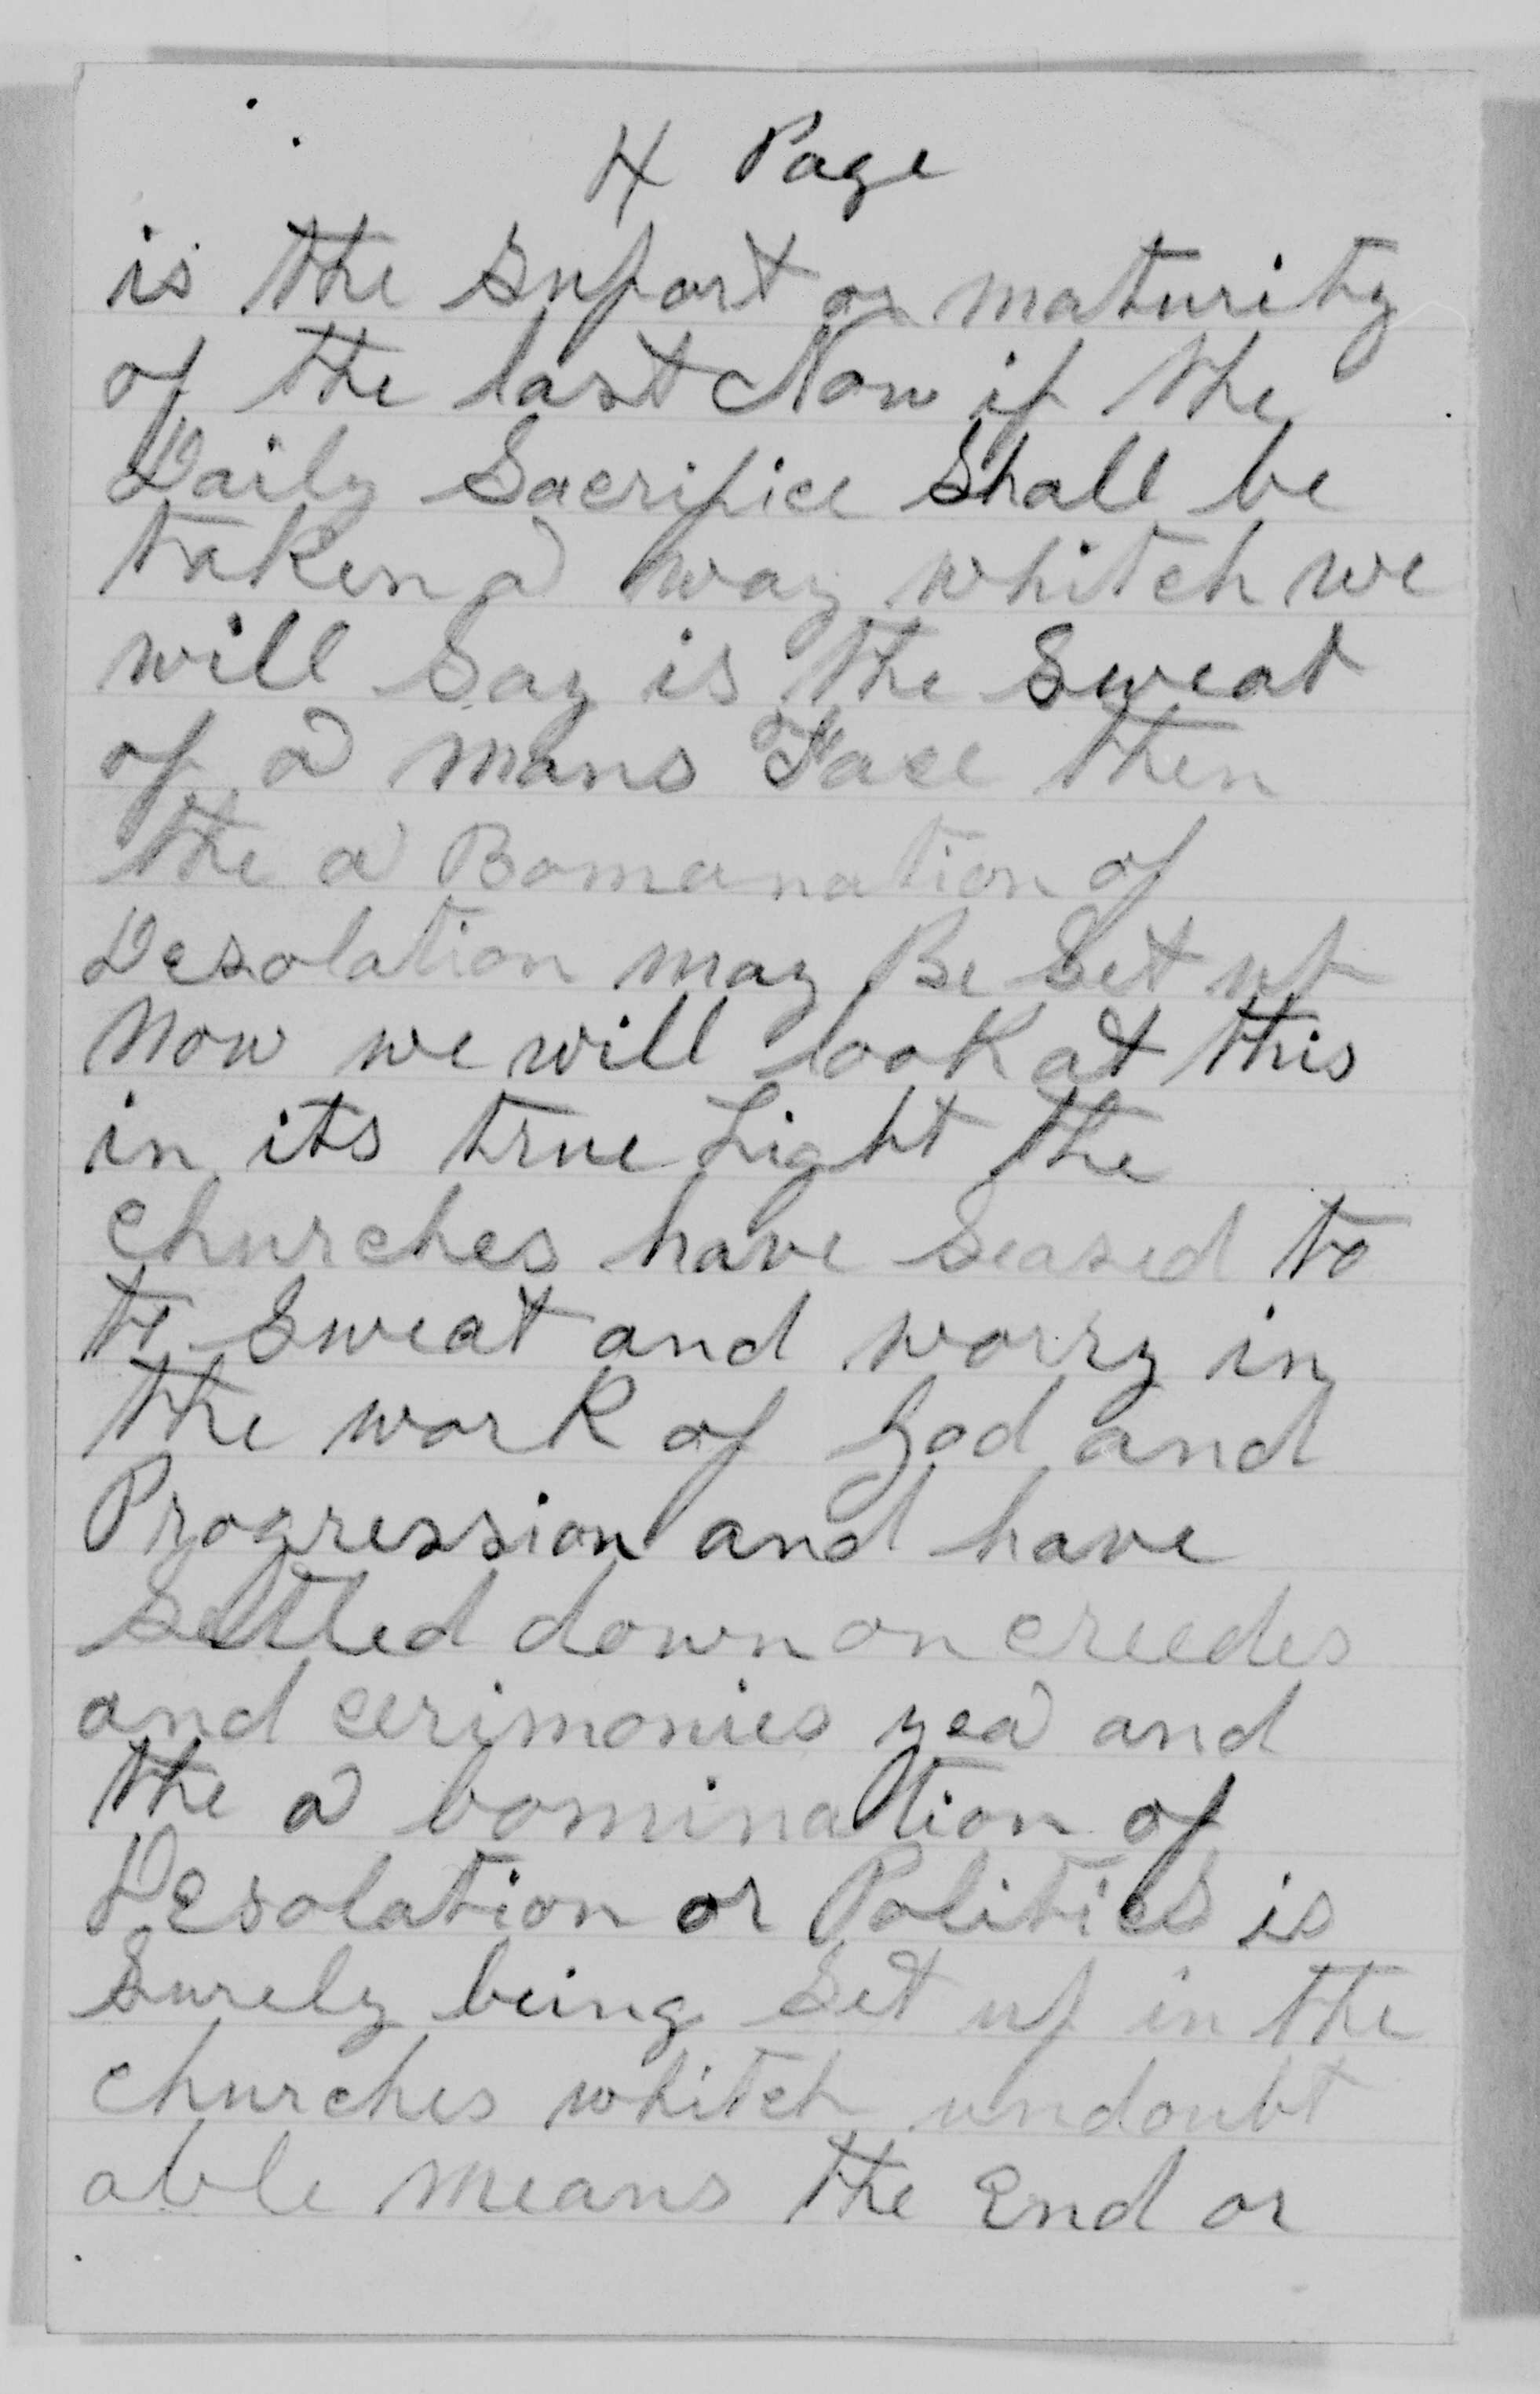 4 Page
is the suport or maturity
of the last Now if the
Daily Sacrifice shall be
taken a way whitch we
will say is the sweat
of a mans Face then
the a Bomanation of
Desolation may Be set up
Now we will look at this
in its true Light the
churches have seased to
to sweat and worry in
the work of God and
Progression and have
settled down on creedes
and cerimonies yea and
the a bomination of
Desolation or Politics is
surely being set up in the
churches whitch undoubt
able means the End or